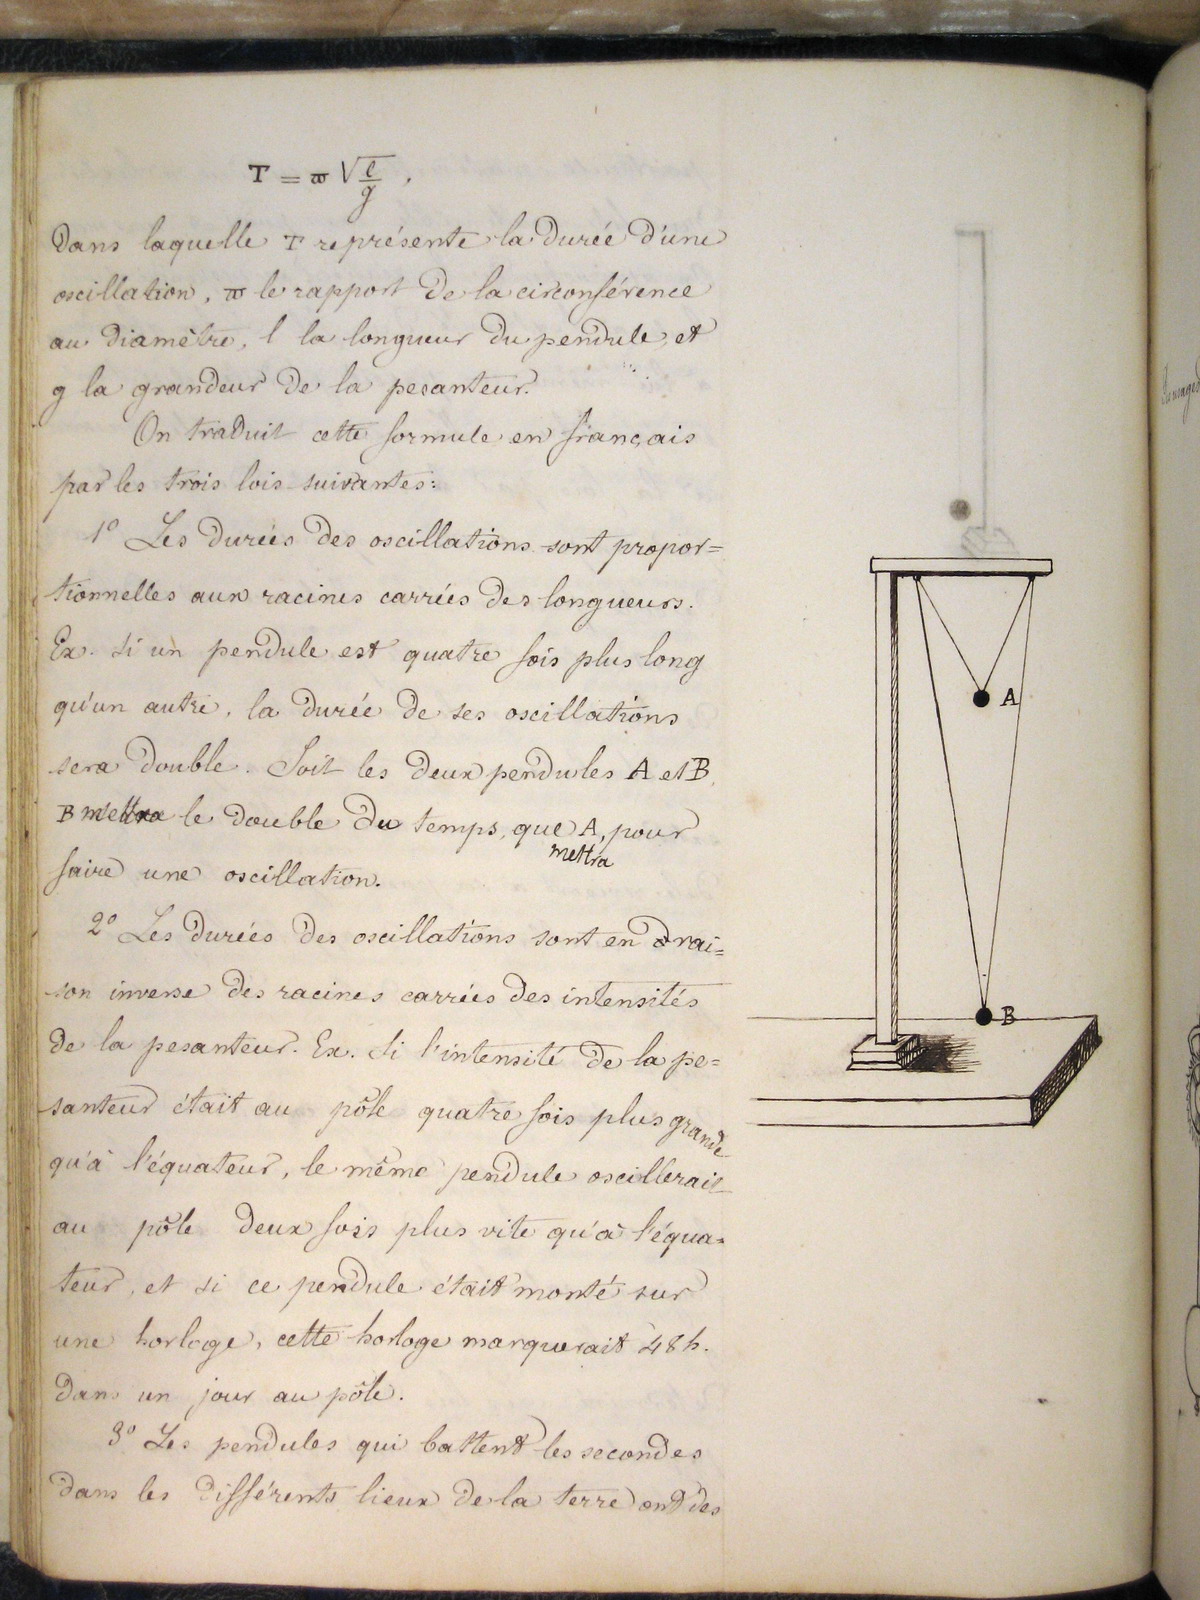 T = π √l/g .
Dans laquelle T représente la durée d'une
oscillation, π le rapport de la circonférence
au diamètre, l la longueur du pendule, et
g la grandeur de la pesanteur.
On traduit cette formule en français
par les trois lois suivantes:
1º Les durées des oscillations sont propor=
tionnelles aux racines carrées des longueurs.
Ex. Si un pendule est quatre fois plus long
qu'un autre, la durée de ses oscillations
sera double. Soit les deux pendules A et B,
B mettra le double du temps, que A, pour
mettra
faire une oscillation.
2º Les durées des oscillations sont en rai=
son inverse des racines carrées des intensités
de la pesanteur. Ex. Si l'intensité de la pe=
santeur était au pôle quatre fois plus grande
qu'à l'équateur, le même pendule oscillerait
au pôle deux fois plus vite qu'à l'équa=
teur, et si ce pendule était monté sur
une horloge, cette horloge marquerait 48h.
dans un jour au pôle.
3º Les pendules qui battent les secondes
dans les différents lieux de la terre ont des
A
B